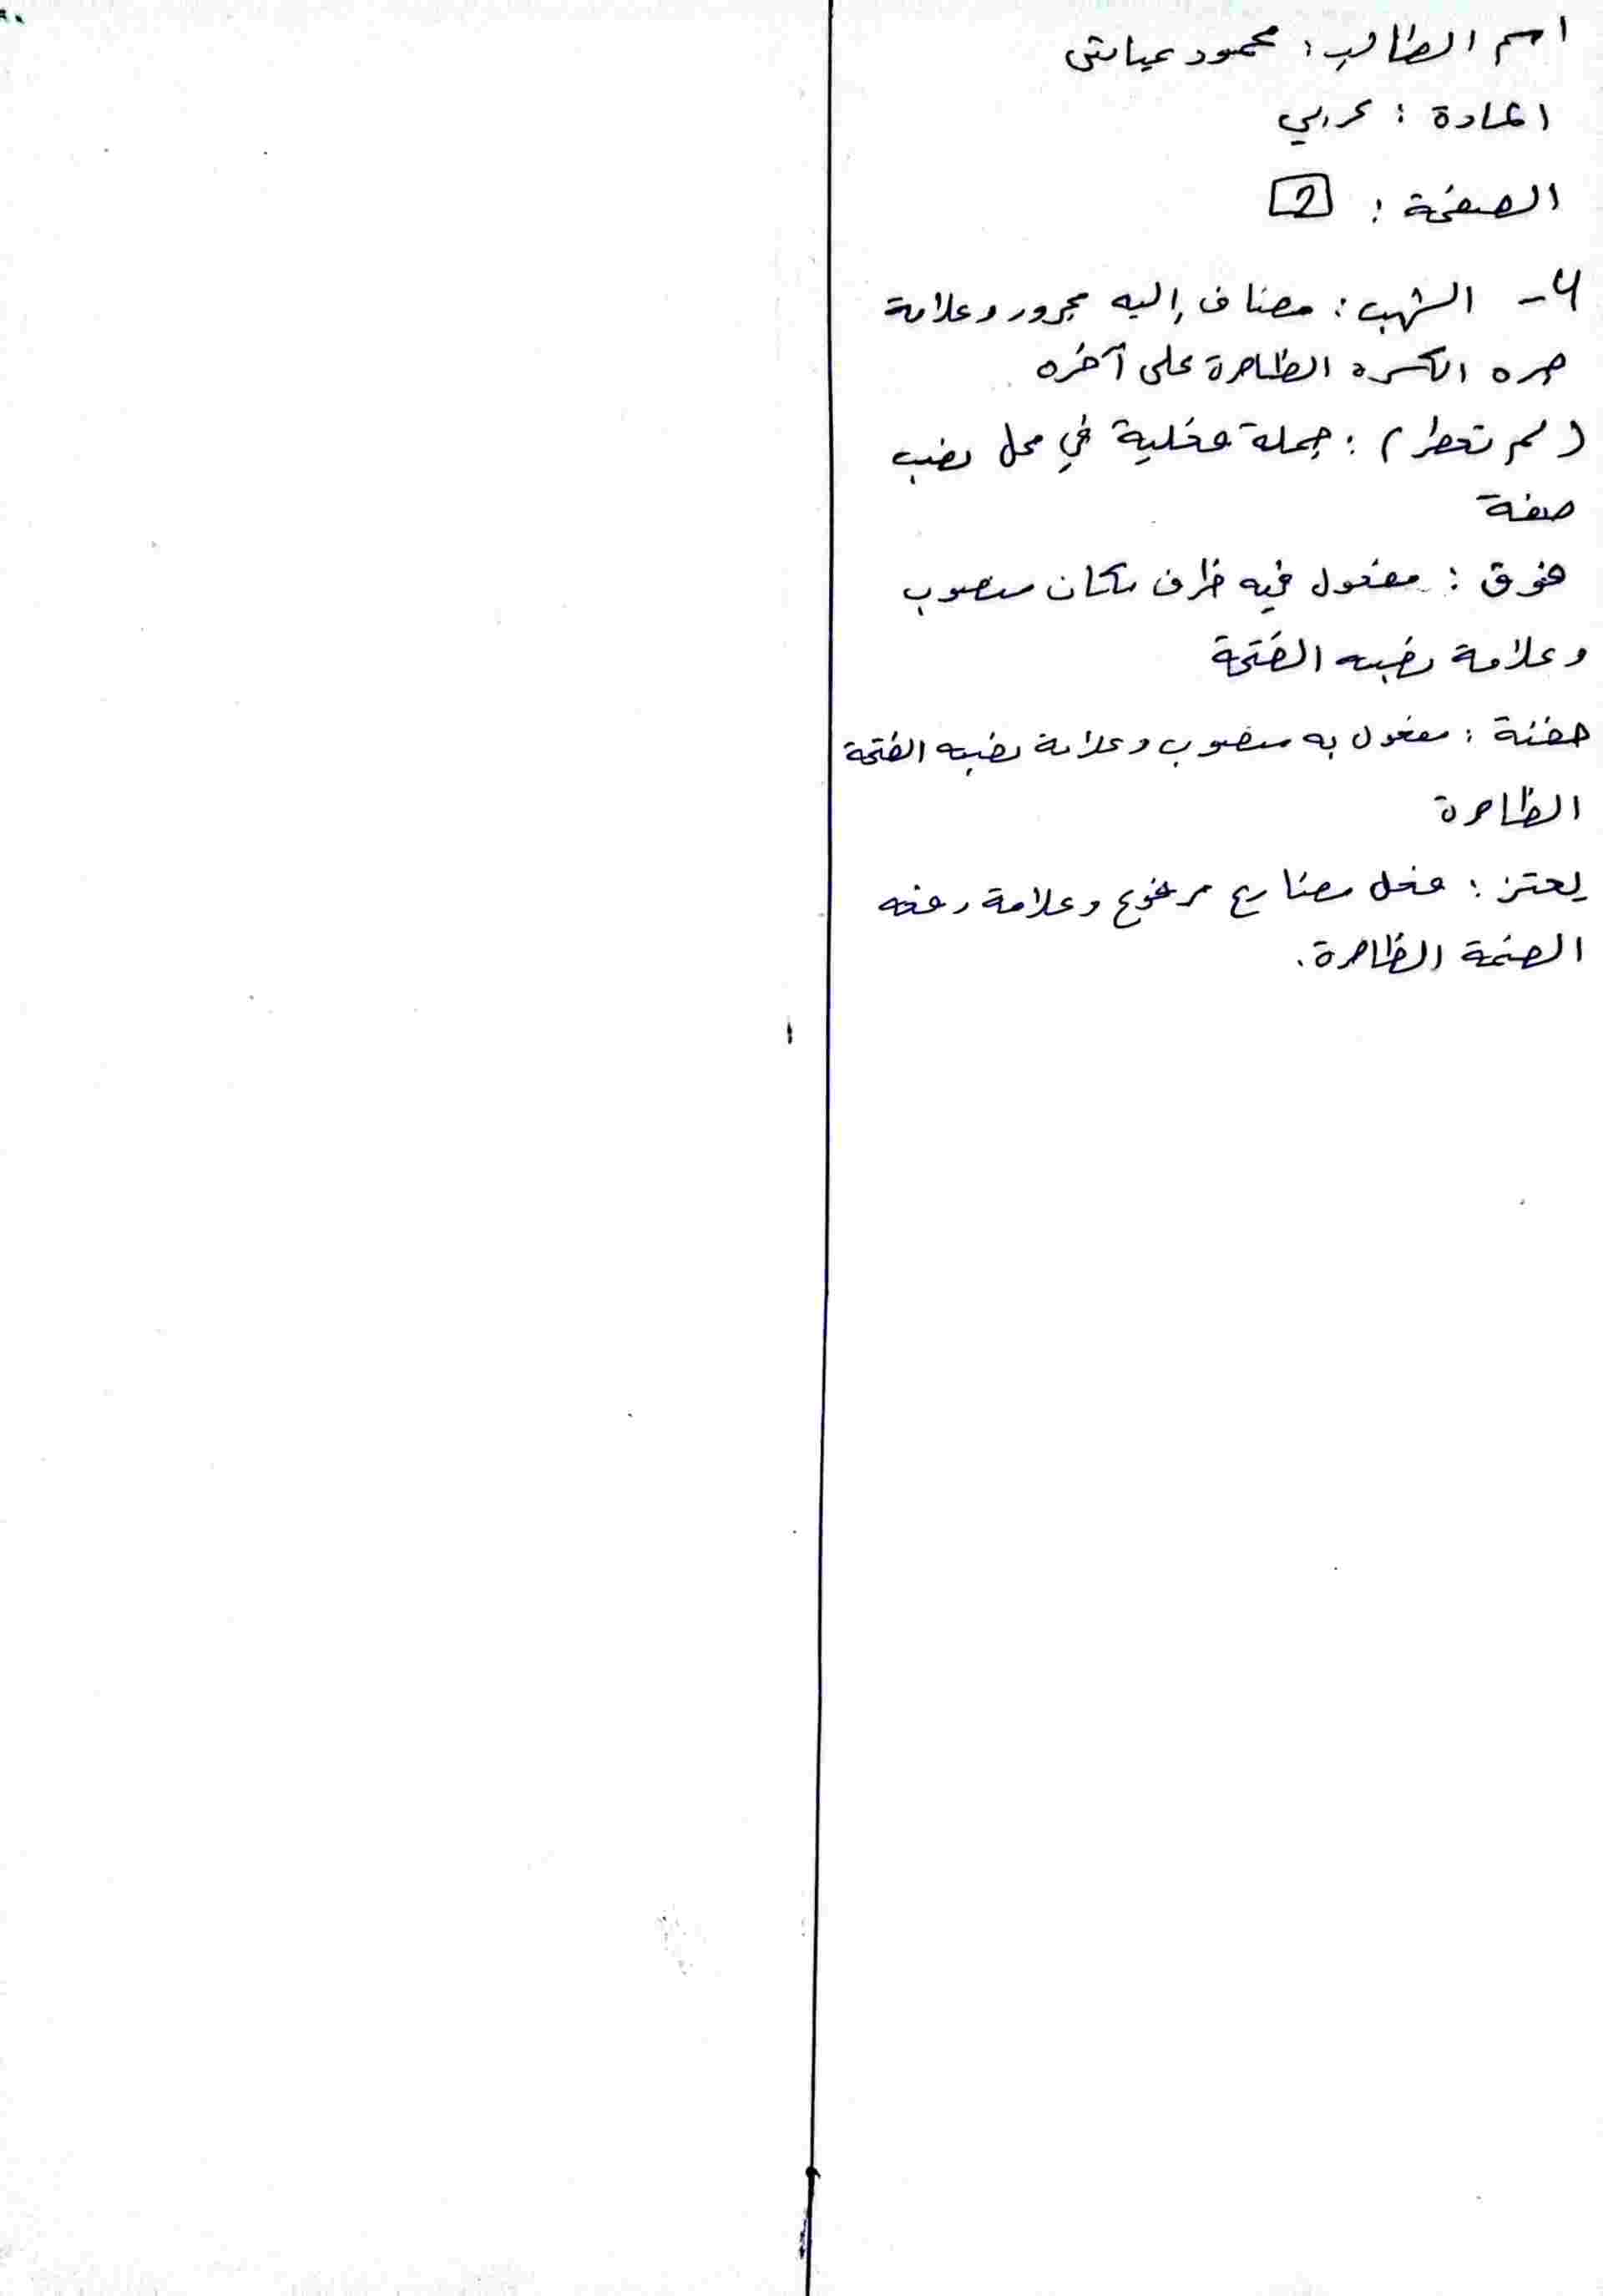 اسم الطالب: محمود عيا
المادة: عربي
الصفحة: 2
4- الشهب: مضاف إليه مجرور وعلامة
جره الكسرة الظاهرة على آخره
(لم تعطر): جملة فعلية في محل نصب
صفة
فوق: مفعول فيه ظرف مكان منصوب
وعلامة نصبه الفتحة
حفنة: مفعول به منصوب وعلامة نصبه الفتحة
الظاهرة
يعتز: فعل مضارع مرفوع وعلامة رفعه
الضمة الظاهرة.